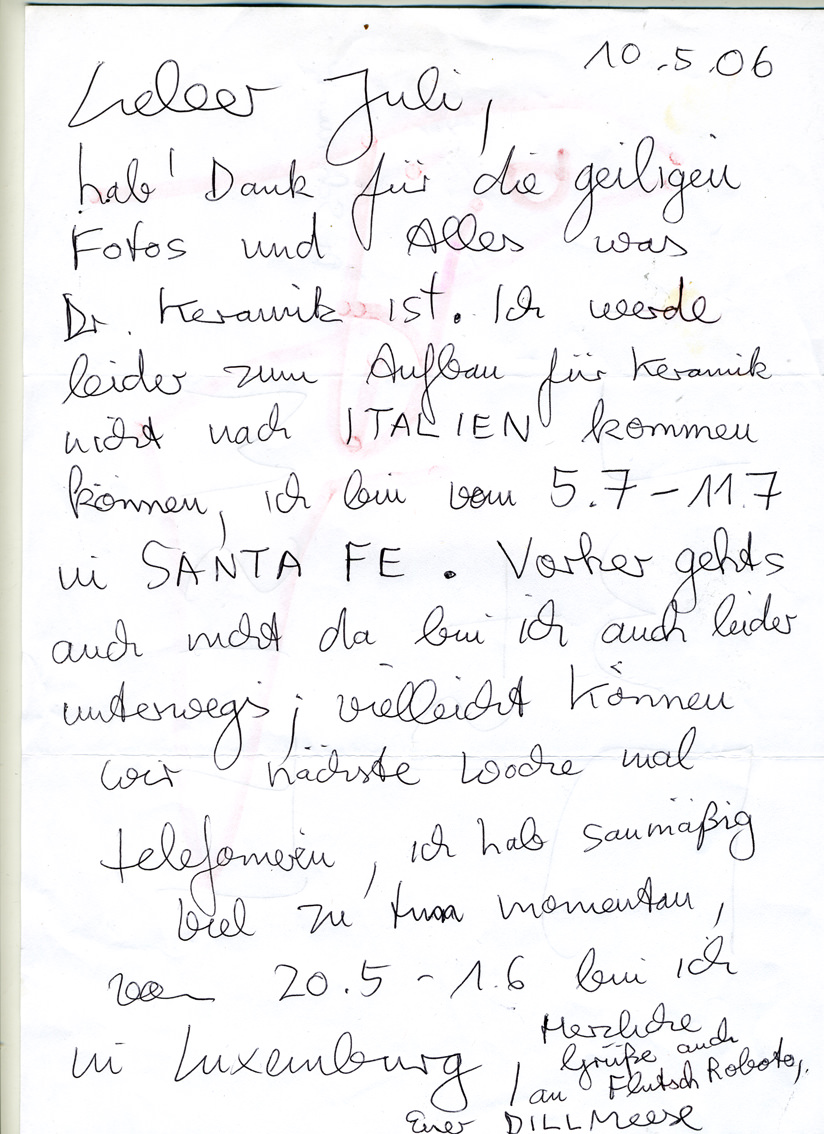 10.5.06
Lieber Juli,
hab' Dank für die geiligen
Fotos und Alles was
Dr. Keramik ist. Ich werde
leider zum Aufbau für Keramik
nicht nach ITALIEN kommen
können, ich bin vom 5.7-11.7
in SANTA FE. Vorher gehts
auch nicht da bin ich auch leider
unterwegs; vielleicht können
wir nächste Woche mal
telefonieren, ich hab saumäßig
viel zu tun momentan,
von 20.5-1.6 bin ich
in Luxemburg,
Herzliche
Grüße auch
an Flutsch Roboto,
Euer DILLMeese